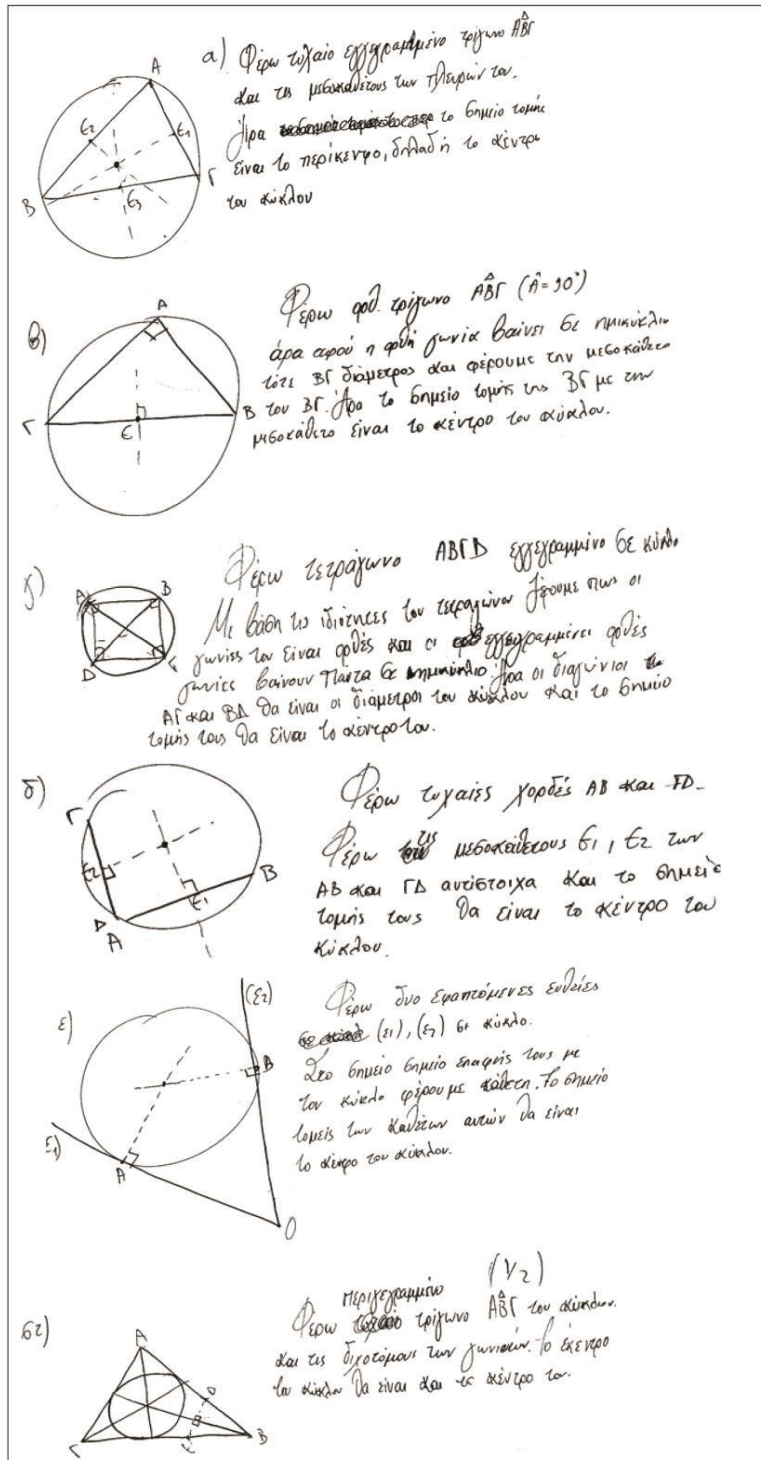 α) Φέρω τυχαίο εγγεγραμμένο τρίγωνο ΑΒΓ
και τις μεσοκαθέτους των πλευρών του.
Άρα το σημείο τομής
είναι το περίκεντρο, δηλαδή το κέντρο
του κύκλου
Α
ε2
ε1
Β
ε3
Γ
β)
Φέρω ορθ. τρίγωνο ΑΒΓ (Â=90°)
άρα αφού η ορθή γωνία βαίνει σε ημικύκλιο
τότε ΒΓ διάμετρος και φέρουμε την μεσοκάθετο
του ΒΓ. Άρα το σημείο τομής της ΒΓ με την
μεσοκάθετο είναι το κέντρο του κύκλου.
Α
Γ
ε
Β
γ)
Φέρω τετράγωνο ΑΒΓΔ εγγεγραμμένο σε κύκλο
Με βάση τις ιδιότητες του τετραγώνου ξέρουμε πως οι
γωνίες του είναι ορθές και οι εγγεγραμμένες ορθές
γωνίες βαίνουν πάντα σε ημικύκλιο. Άρα οι διαγώνιοι
ΑΓ και ΒΔ θα είναι οι διάμετροι του κύκλου και το σημείο
τομής τους θα είναι το κέντρο του.
Α
Β
Δ
Γ
δ)
Φέρω τυχαίες χορδές ΑΒ και ΓΔ.
Φέρω τις μεσοκαθέτους ε1, ε2 των
ΑΒ και ΓΔ αντίστοιχα και το σημείο
τομής τους θα είναι το κέντρο του
κύκλου.
Γ
ε2
ε1
Β
Δ
Α
ε)
Φέρω δυο εφαπτόμενες ευθείες
(ε1), (ε2) σε κύκλο.
Στο σημείο σημείο επαφής τους με
τον κύκλο φέρουμε κάθετη. Το σημείο
τομείς των καθέτων αυτών θα είναι
το κέντρο του κύκλου.
(ε2)
Β
ε1)
Α
Ο
(1/2)
στ)
περιγεγραμμένο
Φέρω τρίγωνο ΑΒΓ του κύκλου.
και τις διχοτόμους των γωνιών. Το έκεντρο
του κύκλου θα είναι και το κέντρο του.
Α
Γ
Β